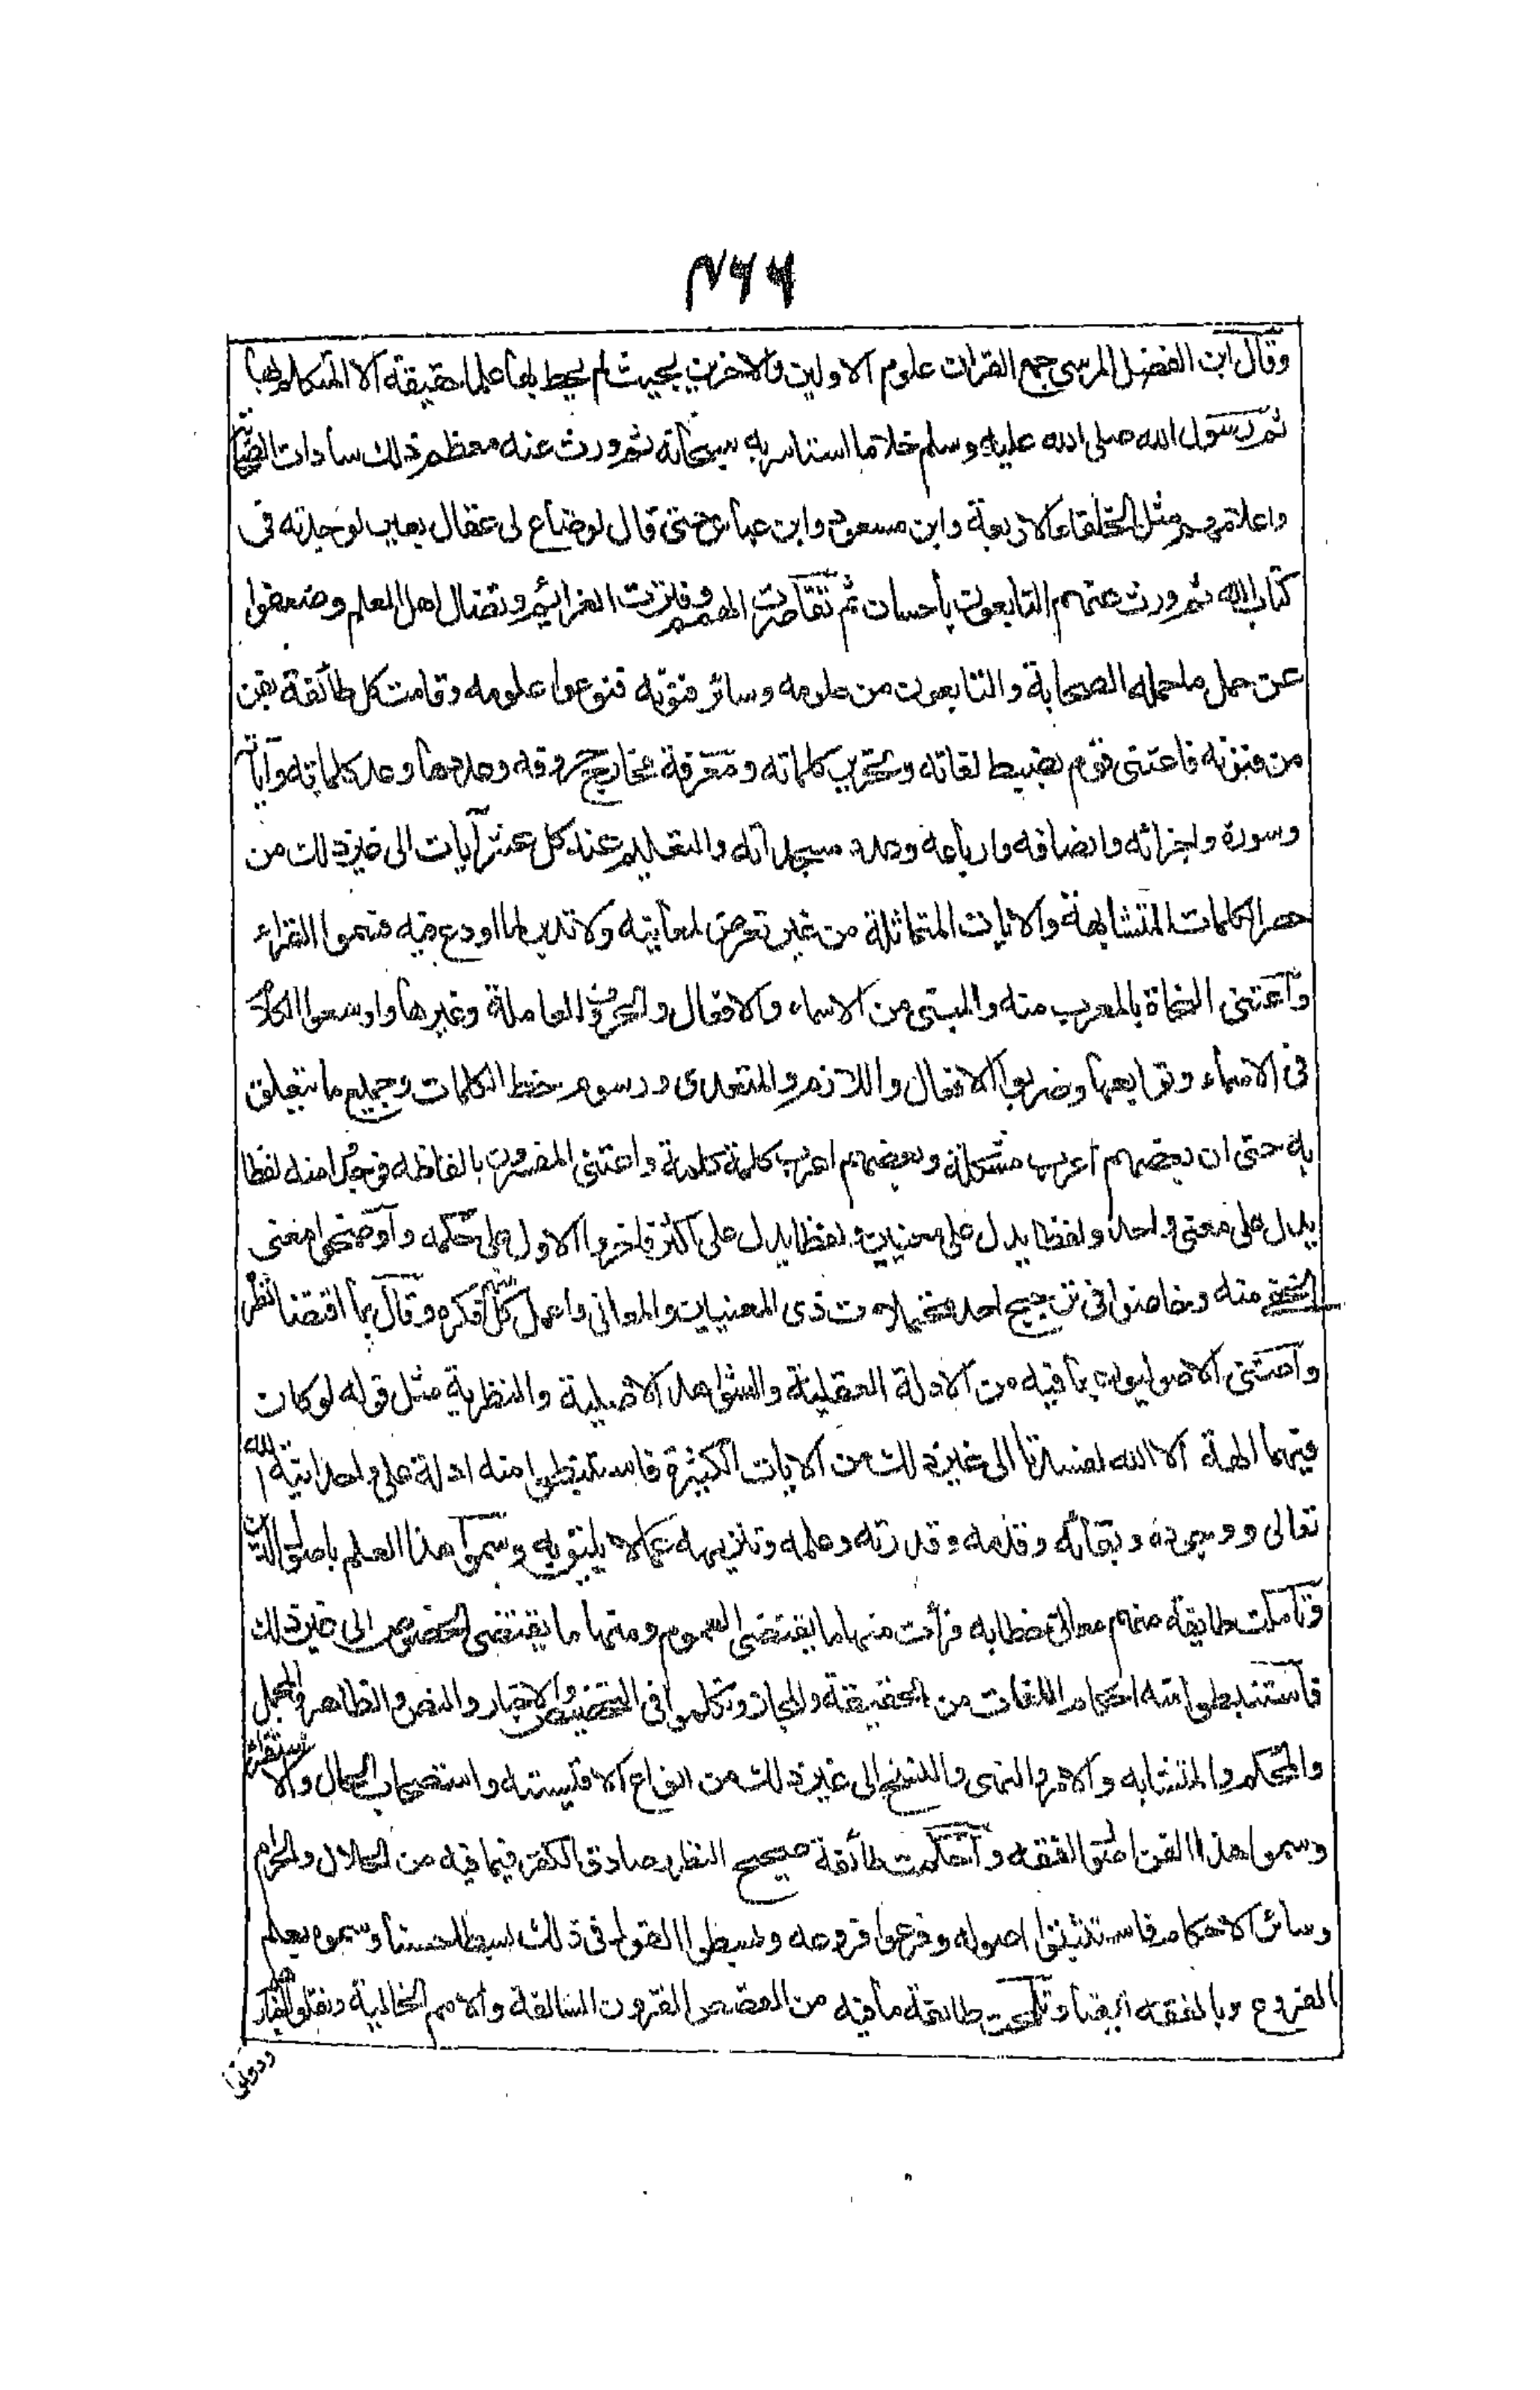 ٢٦٦
وقال ابن الفضل المرسى جمع القران علوم الاولين والاخرين بحيث لم يحط بها علما حقيقة الا المتكلم بها
ثم رسول الله صلى الله عليه وسلم خلا ما استاثر به سبحانه ثم ورث عنه معظم ذلك سادات الصحابة
واعلامهم مثل الخلفاء الاربعة وابن مسعود وابن عباس حتى قال لوضاع لى عقال بعير لوجدته فى
كتاب الله ثم ورث عنهم التابعون باحسان ثم تقاصرت الهمم وفترت العزائم وتضال اهل العلم وضعفوا
عن حمل ما حمله الصحابة والتابعون من علومه وسائر فنونه فنوعوا علومه وقامت كل طائفة بفن
من فنونه فاعتنى قوم بضبط لغاته وتحرير كلماته ومعرفة مخارج حروفه وعددها وعد كلماته وآياته
وسورة واجزائه وانصافه وارباعه وعدد سجداته والتعليم عند كل عشر آيات الى غير ذلك من
حصر الكلمات المتشابهة والايات المتماثلة من غير تعرض لمعانيه ولا تدبر لما اودع فيه فسموا القراء
واعتنى النحاة بالمعرب منه والمبنى من الاسماء والافعال والحروف العاملة وغيرها واوسعوا الكلام
فى الاسماء وتوابعها وضروب الافعال واللازم والمتعدى ورسوم خط الكلمات وجميع ما يتعلق
به حتى ان بعضهم اعرب مشكلة وبعضهم اعرب كلمة كلمة واعتنى المفسرون بالفاظه فوجدوا منه لفظا
يدل على معنى واحد ولفظا يدل على معنيين ولفظا يدل على اكثر فاجروا الاول على حكمه وآوضحوا معنى
الخفى منه وخاضوا فى ترجيح احد محتملات ذى المعنيين والمعانى واعمل كل منهم فكره وقال بما اقتضا نظره
واعتنى الاصوليون بما فيه من الادلة العقلية والشواهد الاصلية والنظرية مثل قوله لو كان
فيهما الهة الا الله لفسدتا الى غير ذلك من الايات الكثيرة فاستنبطوا منه ادلة على واحدانية الله
تعالى ووجوده وبقائه وقدمه وقدرته وعلمه وتنزيهه عما لا يليق به وسموا هذا العلم باصول الدين
وتاملت طايفة منهم معانى خطابه فرأت منها ما يقتضى العموم ومنها ما يقتضى الخصوص الى غير ذلك
فاستنبطوا منه احكام اللغات من الحقيقة والمجاز وتكلموا فى التخصيص والاخبار والنص والظاهر والمجمل
والمحكم والمتشابه والامر والنهى والنسخ الى غير ذلك من انواع الاقيسته واستصحاب الحال والاستقراء
وسموا هذا الفن اصول الفقه وآحكمت طائفة صحيح النظر وصادق الفكر فيما فيه من الحلال والحرام
وسائر الاحكام فاستثبتوا اصوله وفرعوا فروعه وبسطوا القول فى ذلك بسطا حسنا وسموه بعلم
الفروع وبالفقه ايضا وتلمحت طائفة ما فيه من القصص القرون السالفة والامم الخالية ونقلوا اخبارهم
ودونوا